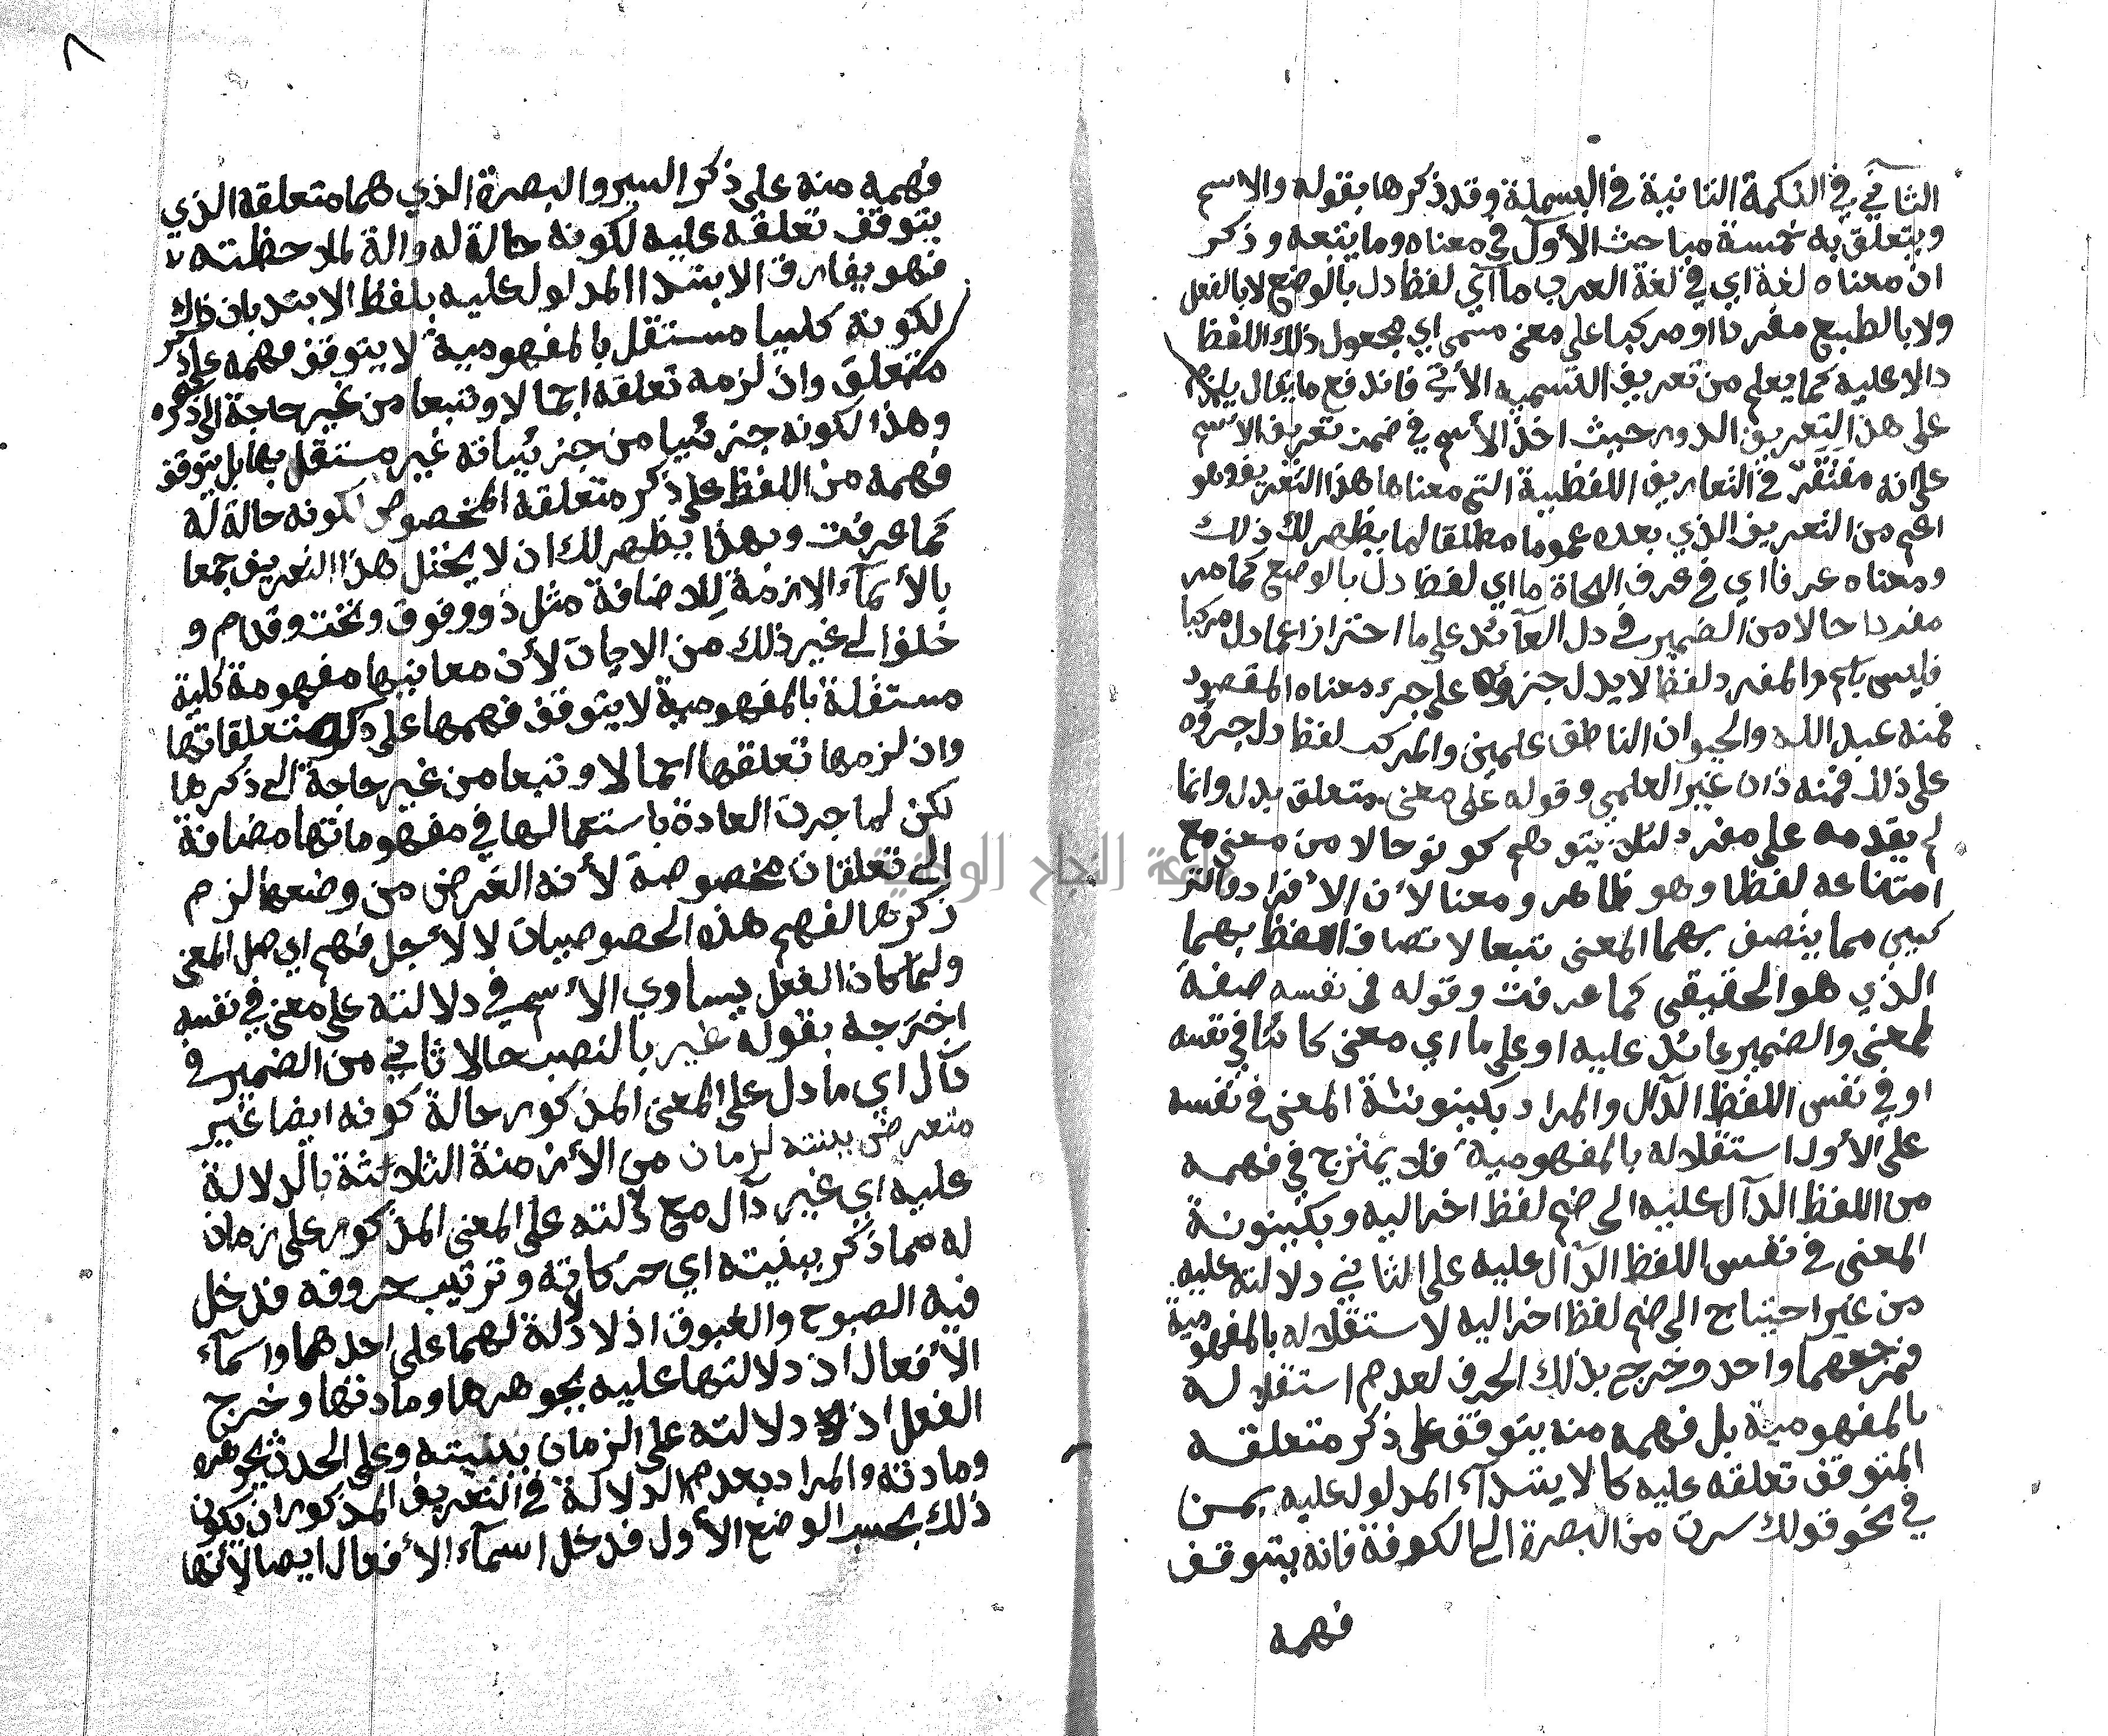 الثاني في الكلمة الثانية في البسملة وقد ذكرها بقوله والاسم
ويتعلق به خمسة مباحث الأول في معناه وما يتبعه وذكر
ان معناه لغة اي في لغة العرب ما اي لفظ دل بالوضع لا بالفعل
ولا بالطبع مفردا او مركبا على معنى مسمى اي مجعول ذلك اللفظ
دالا عليه كما يعلم من تعريف التسمية الأتي فاندفع ما يقال يلزم
على هذا التعريف الدور حيث اخذ الأسم في ضمن تعريف الاسم
على انه مغتفر في التعاريف اللفظية التي معناها هذا التعريف وهو
اعم من التعريف الذي بعده عموما مطلقا لما يظهر لك ذلك
ومعناه عرفا اي في عرف النحاة ما اي لفظ دل بالوضع كما مر
مفردا حالا من الضمير في دل العآئد على ما احترازا عما دل مركبا
فليس باسم والمفرد لفظ لا يدل جزؤه على جزء معناه المقصود
فمنه عبد الله والحيوان الناطق علمين والمركب لفظ دل جزؤه
على ذلك فمنه ذان غير العلمي وقوله على معنى متعلق بدل وانما
لم يقدمه على مفرد لئلا يتوهم كونه حالا من معنى مع
امتناعه لفظا وهو ظاهر ومعنا لأن الأفراد والتر
كيب مما يتصف بهما المعنى تبعا لاتصاف اللفظ بهما
الذي هو الحقيقي كما عرفت وقوله في نفسه صفة
لمعنى والضمير عائد عليه او على ما اي معنى كائنا في نفسه
او في نفس اللفظ الدآل والمراد بكينونته المعنى في نفسه
على الأول استقلاله بالمفهومية فلا يمتزج في فهمه
من اللفظ الدآل عليه الى ضم لفظ اخر اليه وبكينونة
المعنى في نفس اللفظ الدآل عليه على الثاني دلالته عليه
من غير احتياج الى ضم لفظ اخر اليه لاستقلاله بالمفهومية
فمرجعهما واحد وخرج بذلك الحرف لعدم استقلاله
بالمفهومية بل فهمه منه يتوقف على ذكر متعلقه
المتوقف تعلقه عليه كالابتدآء المدلول عليه بمن
في نحو قولك سرت من البصرة الى الكوفة فانه يتوقف
فهمه
٨
فهمه منه على ذكر السير والبصرة الذي هما متعلقه الذي
يتوقف تعلقه عليه لكونه حالة له والة لملاحظته
فهو يفارق الابتدا المدلول عليه بلفظ الابتد بان ذلك
لكونه كليا مستقل بالمفهومية لا يتوقف فهمه على ذكر
متعلق وان لزمه تعلقه اجمالا وتبعا من غير حاجة الى ذكره
وهذا لكونه جزئيا من جزئياته غير مستقل بها بل يتوقف
فهمه من اللفظ على ذكر متعلقه المخصوص لكونه حالة له
كما عرفت وبهذا يظهر لك ان لا يختل هذا التعريف جمعا
بالأسمآء الازمة للاضافة مثل ذو وفوق وتحت وقدام و
خلف الى غير ذلك من الاجات لأن معانيها مفهومة كلية
مستقلة بالمفهومية لا يتوقف فهمها على ذكر متعلقاتها
وان لزمها تعلقها اجمالا وتبعا من غير حاجة الى ذكرها
لكن لما جرت العادة باستعمالها في مفهوماتها مضافة
الى تعلقات مخصوصة لأنه الغرض من وضعها لزم
ذكرها لفهم هذه الخصوصيات لا لأجل فهم اصل المعنى
ولما كان الفعل يساوي الأسم في دلالته على معنى في نفسه
اخترجه بقوله غير بالنصب حالا ثاني من الضمير في
دآل اي ما دل على المعنى المذكور حالة كونه ايضا غير
متعرض ببنته لزمان من الأزمنة الثلاثة بالدلالة
عليه اي غير دآل مع دلته على المعنى المذكور على زمان
له مما ذكر ببنيته اي حركاته وترتيب حروفه فدخل
فيه الصبوح والغبوق اذ لا دلة لهما على احدهما واسمآء
الأفعال اذ دلالتها عليه بجوهرها ومادتها وخرج
الفعل اذ دلالته على الزمان ببنيته وعلى الحدث بجوهره
ومادته والمراد بعدم الدلالة في التعريف المذكور ان يكون
ذلك بحسب الوضع الأول فدخل اسمآء الأفعال ايضا لأنها